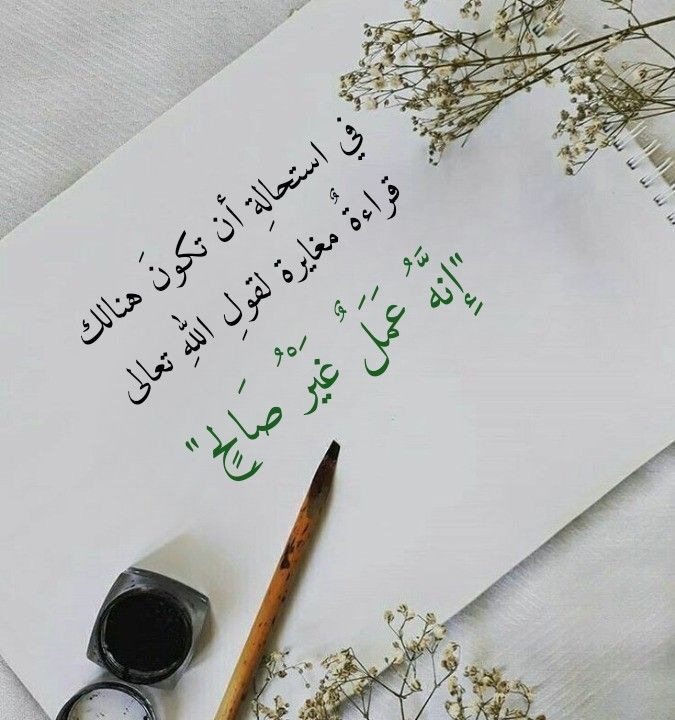 في استحالةِ أن تكونَ هنالك
قراءةٌ مُغايرة لقولِ اللهِ تعالى
"إِنَّهُ عَمَلٌ غَيْرُ صَالِحٍ"